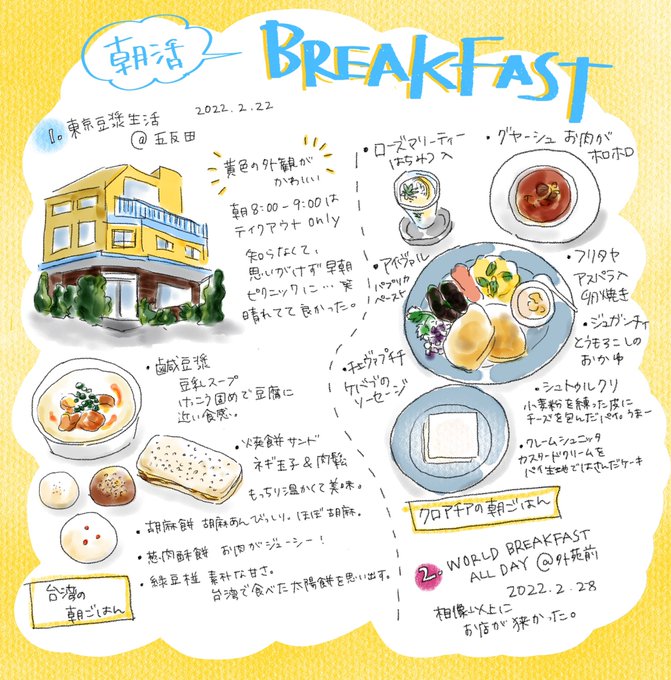 朝活
BREAKFAST
1. 東京豆漿生活
@ 五反田
2022.2.22
黄色の外観が
かわいい
朝8:00-9:00は
テイクアウト only
知らなくて、
思いがけず早朝
ピクニックに…笑
晴れてて良かった。
・鹹豆漿
豆乳スープ
けっこう固めで豆腐に
近い食感。
・焼餅サンド
ネギ玉子&肉鬆
もっちり温かくて美味。
・胡麻餅 胡麻あんびっしり。ほぼ胡麻。
・葱肉酥餅 お肉がジューシー!
・緑豆椪 素朴な甘さ。
台湾で食べた太陽餅を思い出す。
台湾の
朝ごはん
・ローズマリーティー
はちみつ入
・グヤーシュ お肉が
ホロホロ
・アイヴァル
パプリカ
ペースト
・フリタヤ
アスパラ入
卵焼き
・ジュガンチィ
とうもろこしの
おかゆ
・チェヴァプチチ
ケバブの
ソーセージ
・シュトゥルクリ
小麦粉を練った皮に
チーズを包んだパイ。うまー
・クレームシュニッタ
カスタードクリームを
パイ生地ではさんだケーキ
クロアチアの朝ごはん
2. WORLD BREAKFAST
ALL DAY @外苑前
2022.2.28
想像以上に
お店が狭かった。